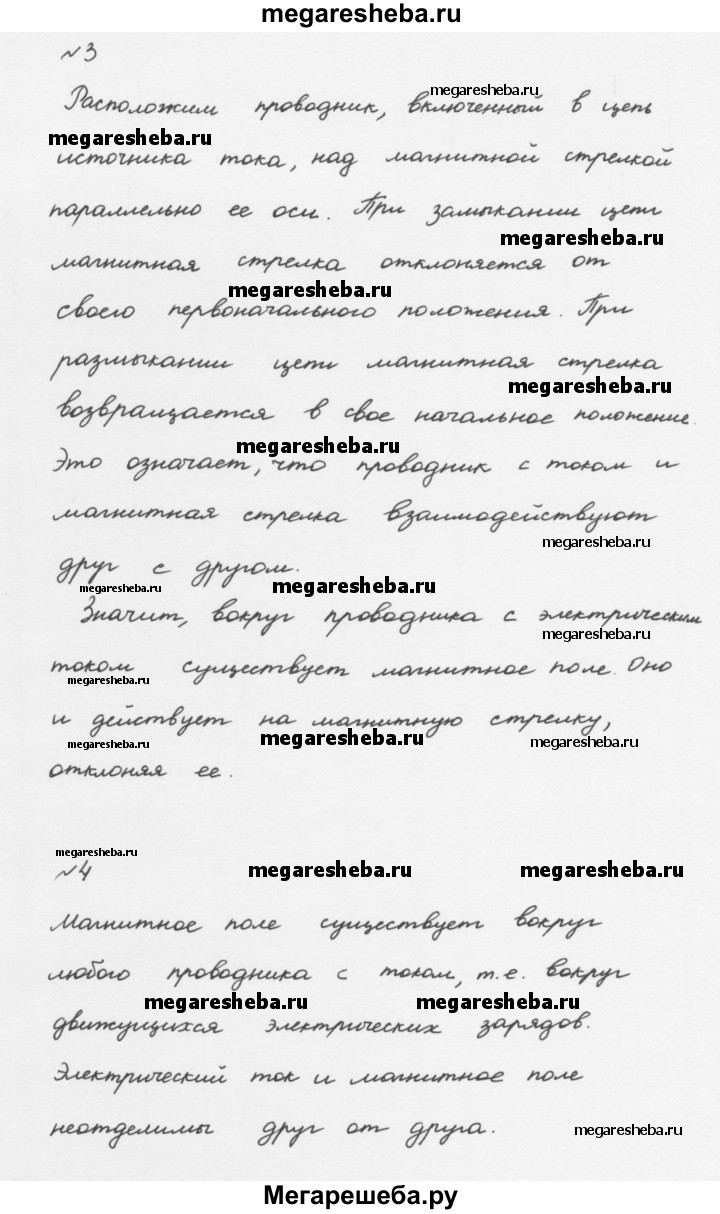 megaresheba.ru
№3
megaresheba.ru
Расположим проводник, включенный в цепь
megaresheba.ru
источника тока, над магнитной стрелкой
параллельно ее оси. При замыкании цепи
megaresheba.ru
магнитная стрелка отклоняется от
megaresheba.ru
своего первоначального положения. При
размыкании цепи магнитная стрелка
megaresheba.ru
возвращается в свое начальное положение.
megaresheba.ru
Это означает, что проводник с током и
магнитная стрелка взаимодействуют
megaresheba.ru
друг с другом.
megaresheba.ru megaresheba.ru
Значит, вокруг проводника с электрическим
megaresheba.ru
током существует магнитное поле. Оно
megaresheba.ru
и действует на магнитную стрелку,
megaresheba.ru megaresheba.ru megaresheba.ru
отклоняя ее.
megaresheba.ru
№4 megaresheba.ru megaresheba.ru
Магнитное поле существует вокруг
любого проводника с током, т.е. вокруг
megaresheba.ru megaresheba.ru
движущихся электрических зарядов.
Электрический ток и магнитное поле
неотделимы друг от друга. megaresheba.ru
Мегарешеба.ру